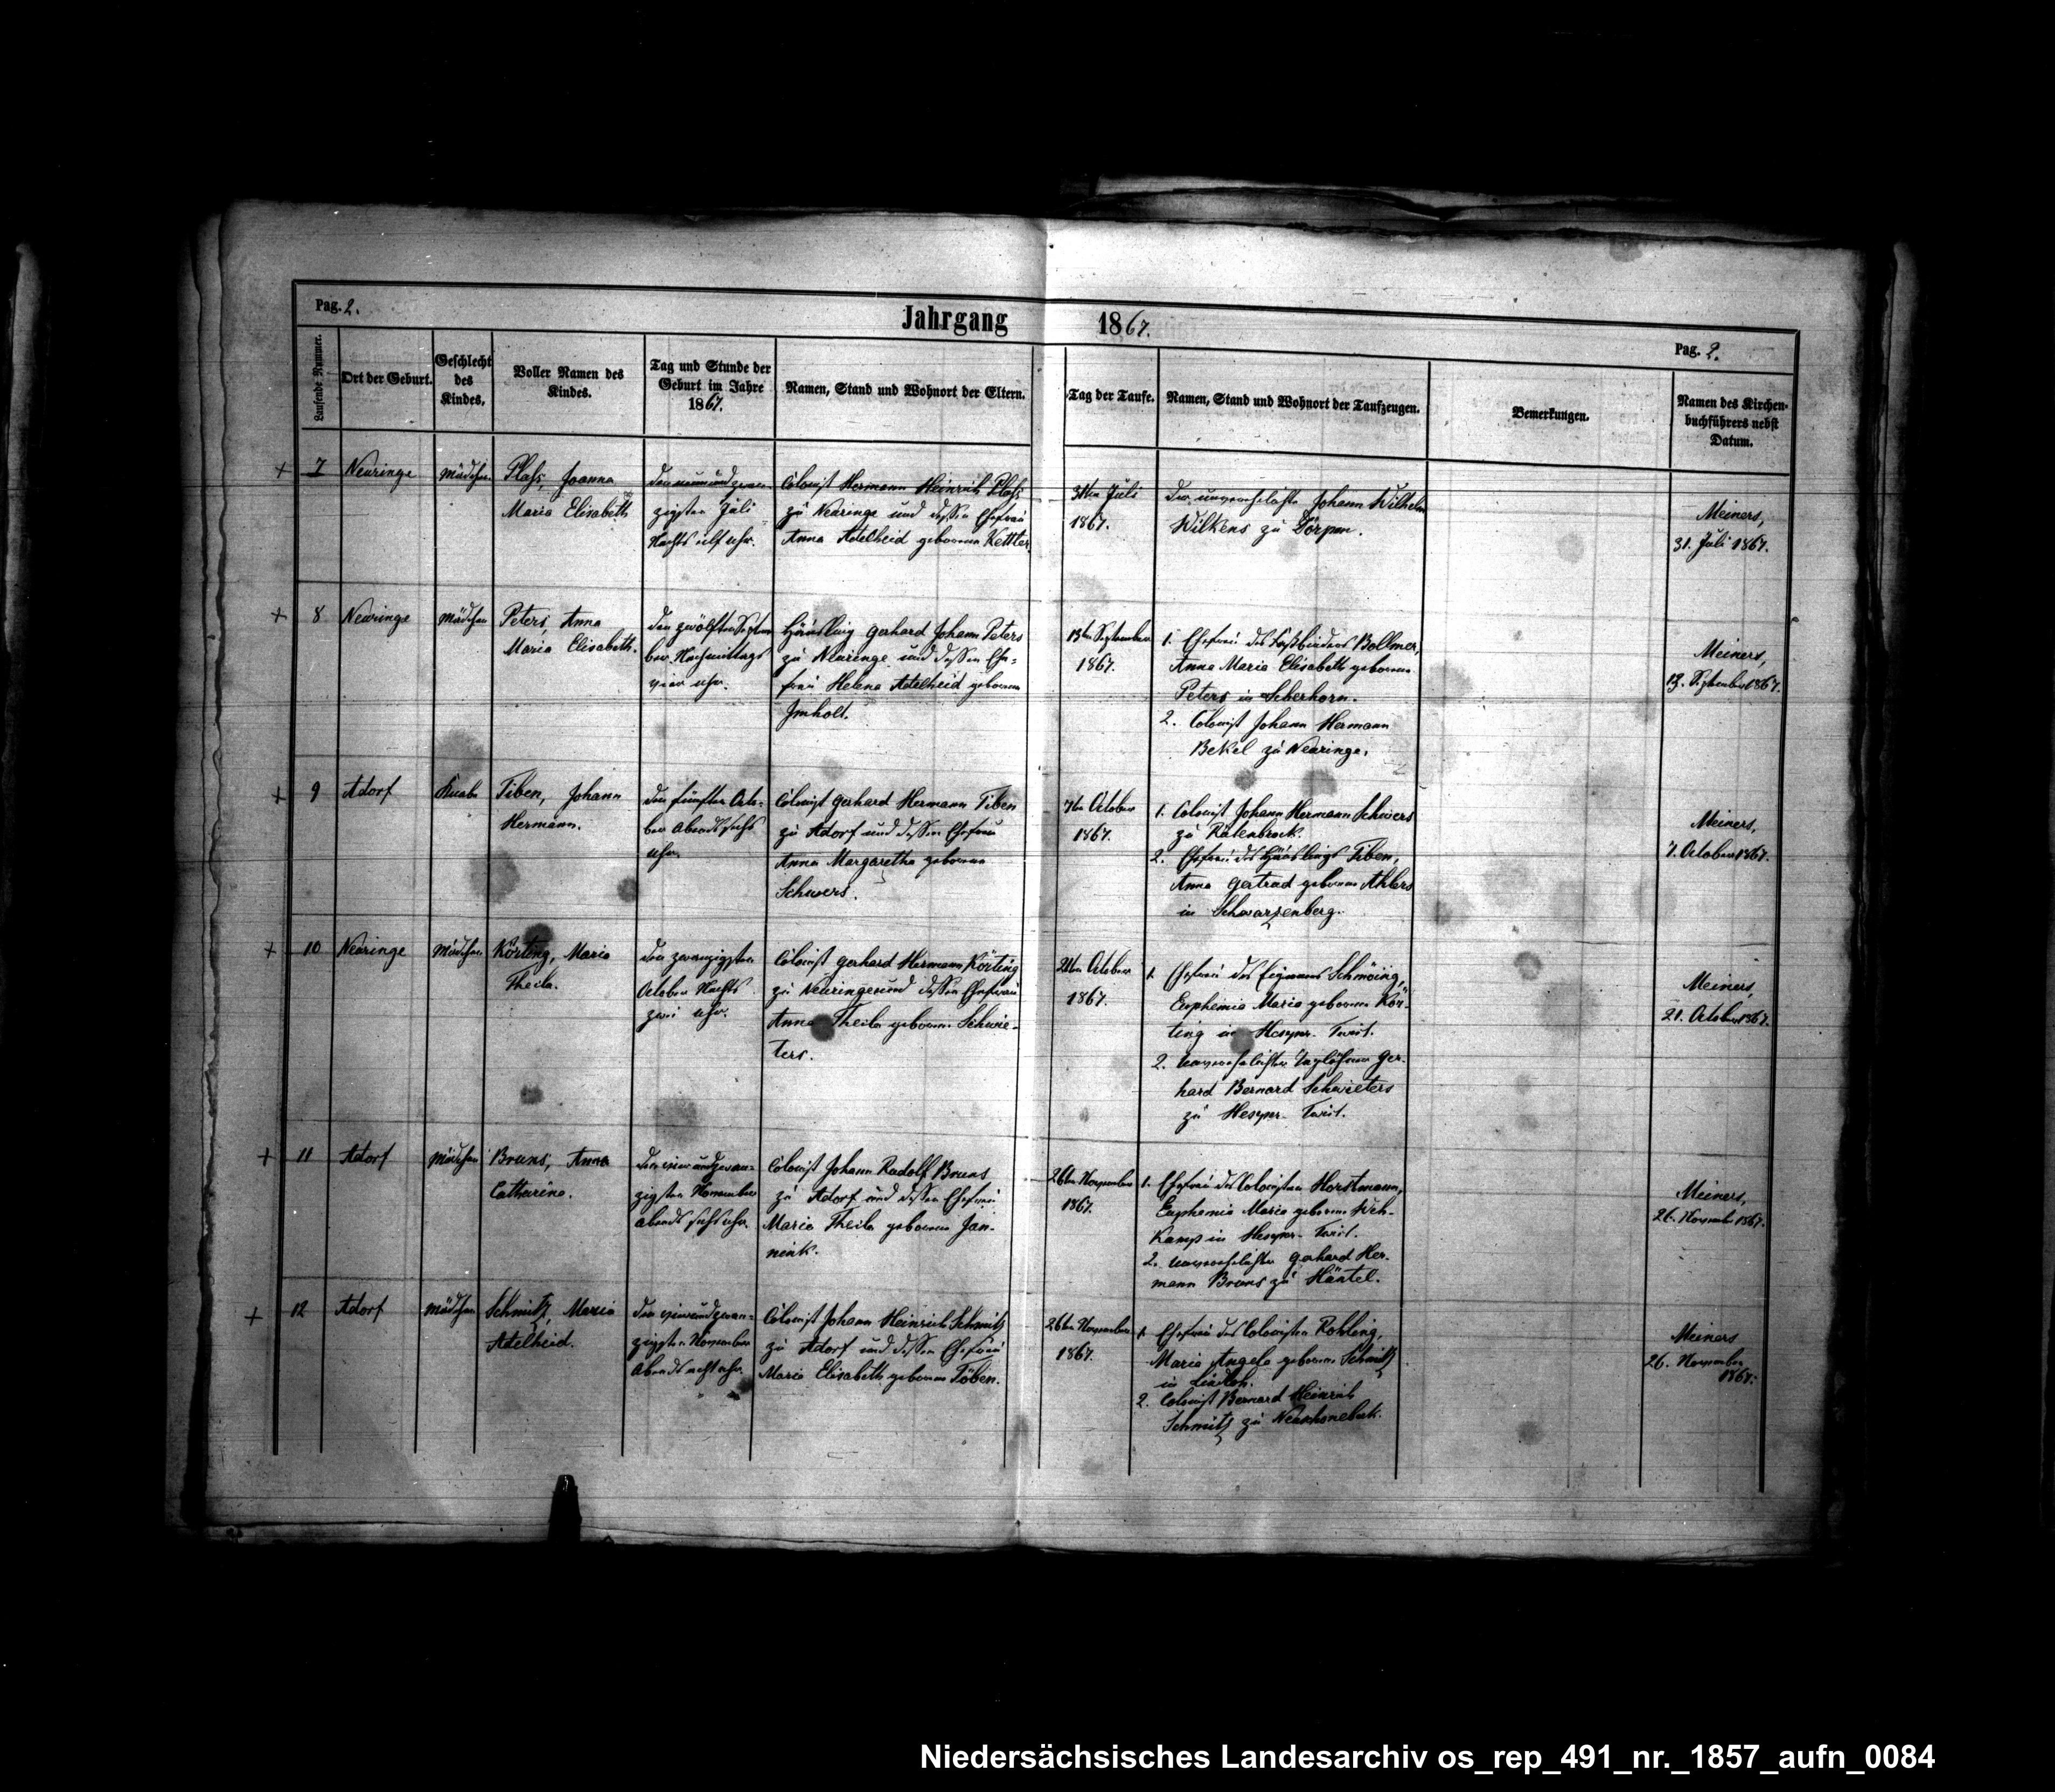 Pag. 2.
Jahrgang 1867.
Pag. 2.
Laufende Nummer.
Ort der Geburt.
Geschlecht
des
Kindes.
Voller Namen des
Kindes.
Tag und Stunde der
Geburt im Jahre
1867.
Namen, Stand und Wohnort der Eltern.
Tag der Taufe.
Namen, Stand und Wohnort der Taufzeugen.
Bemerkungen.
Namen des Kirchen-
buchführers nebst
Datum.
+ 7
Neuringe
Mädchen
Plaß, Joanna
Maria Elisabeth
den neunundzwan-
zigsten Juli
Nachts elf Uhr.
Colonist Hermann Heinrich Plaß
zu Neuringe und dessen Ehefrau
Anna Adelheid geborene Kettler.
31ten Juli
1867.
Der unverehelichte Johann Wilhelm
Wilkens zu Dörpen.
Meiners,
31. Juli 1867.
+ 8
Neuringe
Mädchen
Peters, Anna
Maria Elisabeth.
den zwölften Septem-
ber Nachmittags
vier Uhr.
Häusling Gerhard Johann Peters
zu Neuringe und dessen Ehe-
frau Helena Adelheid geborene
Imholt.
13ten September
1867.
1. Ehefrau des Faßbinders Bollmer,
Anna Maria Elisabeth geborene
Peters in
2. Colonist Johann Hermann
Bekel zu Neuringe.
Meiners,
13. September 1867.
+ 9
Adorf
Knabe
Tiben, Johann
Hermann.
den fünften Octo-
ber Abends sechs
Uhr.
Colonist Gerhard Hermann Tiben
zu Adorf und dessen Ehefrau
Anna Margaretha geborene
Schwers.
7ten October
1867.
1. Colonist Johann Hermann Schwers
zu Rütenbrock.
2. Ehefrau des Häuslings Tiben,
Anna Gertrud geborene Ahlers
in Schwarzenberg.
Meiners,
7. October 1867.
+ 10
Neuringe
Mädchen
Körting, Maria
Theila.
den zwanzigsten
October Nachts
zwei Uhr.
Colonist Gerhard Hermann Körting
zu Neuringe und dessen Ehefrau
Anna Theila geborene Schwie-
ters.
21ten October
1867.
1. Ehefrau des Eigeners Schmöing,
Euphemia Maria geborene Kör-
ting in Hesper-Twist.
2. Unverehelichter Taglöhner Ger-
hard Bernard Schwieters
zu Hesper-Twist.
Meiners,
21. October 1867.
+ 11
Adorf
Mädchen
Bruns, Anna
Catharina.
den vierundzwan-
zigsten November
Abends sechs Uhr.
Colonist Johann Rudolf Bruns
zu Adorf und dessen Ehefrau
Maria Theila geborene Jan-
nink.
26ten November
1867.
1. Ehefrau des Colonisten Horstmann,
Euphemia Maria geborene
kamp in Hesper-Twist.
2. Unverehelichter Gerhard Her-
mann Bruns zu Hüntel.
Meiners,
26. November 1867.
+ 12
Adorf
Mädchen
Schmitz, Maria
Adelheid.
den vierundzwan-
zigsten November
Abends acht Uhr.
Colonist Johann Heinrich Schmitz
zu Adorf und dessen Ehefrau
Maria Elisabeth geborene Töben.
26ten November
1867.
1. Ehefrau des Colonisten Rohling,
Maria Angela geborene Schmitz
in Lindloh.
2. Colonist Bernard Heinrich
Schmitz zu
Meiners
26. November
1867.
Niedersächsisches Landesarchiv os_rep_491_nr._1857_aufn_0084